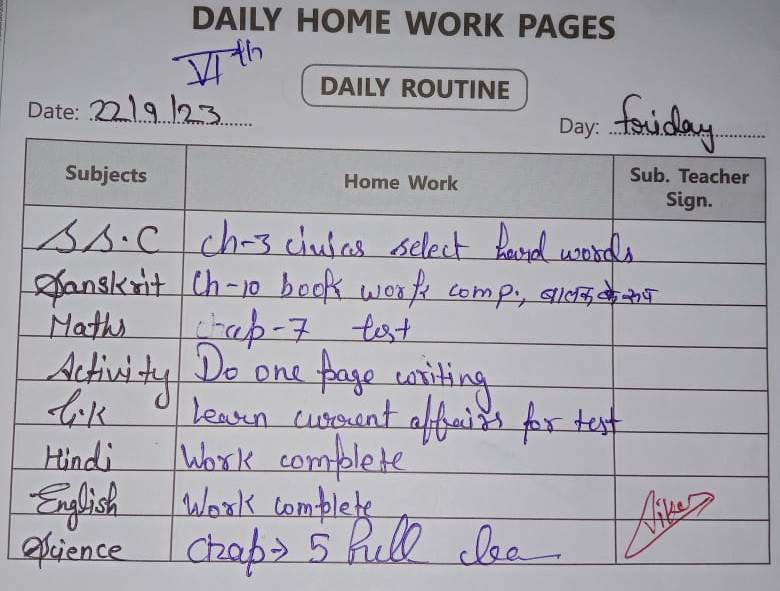 DAILY HOME WORK PAGES
VIth
DAILY ROUTINE
Date: 22/9/23
Day: friday
Subjects Home Work Sub. Teacher Sign.
S S.C ch-3 civics select hard words
Sanskrit Ch-10 book work comp., बालक के रूप
Maths chap-7 test
Activity Do one page writing
G.K learn current affairs for test
Hindi Work complete
English Work complete
Science Chap→ 5 full